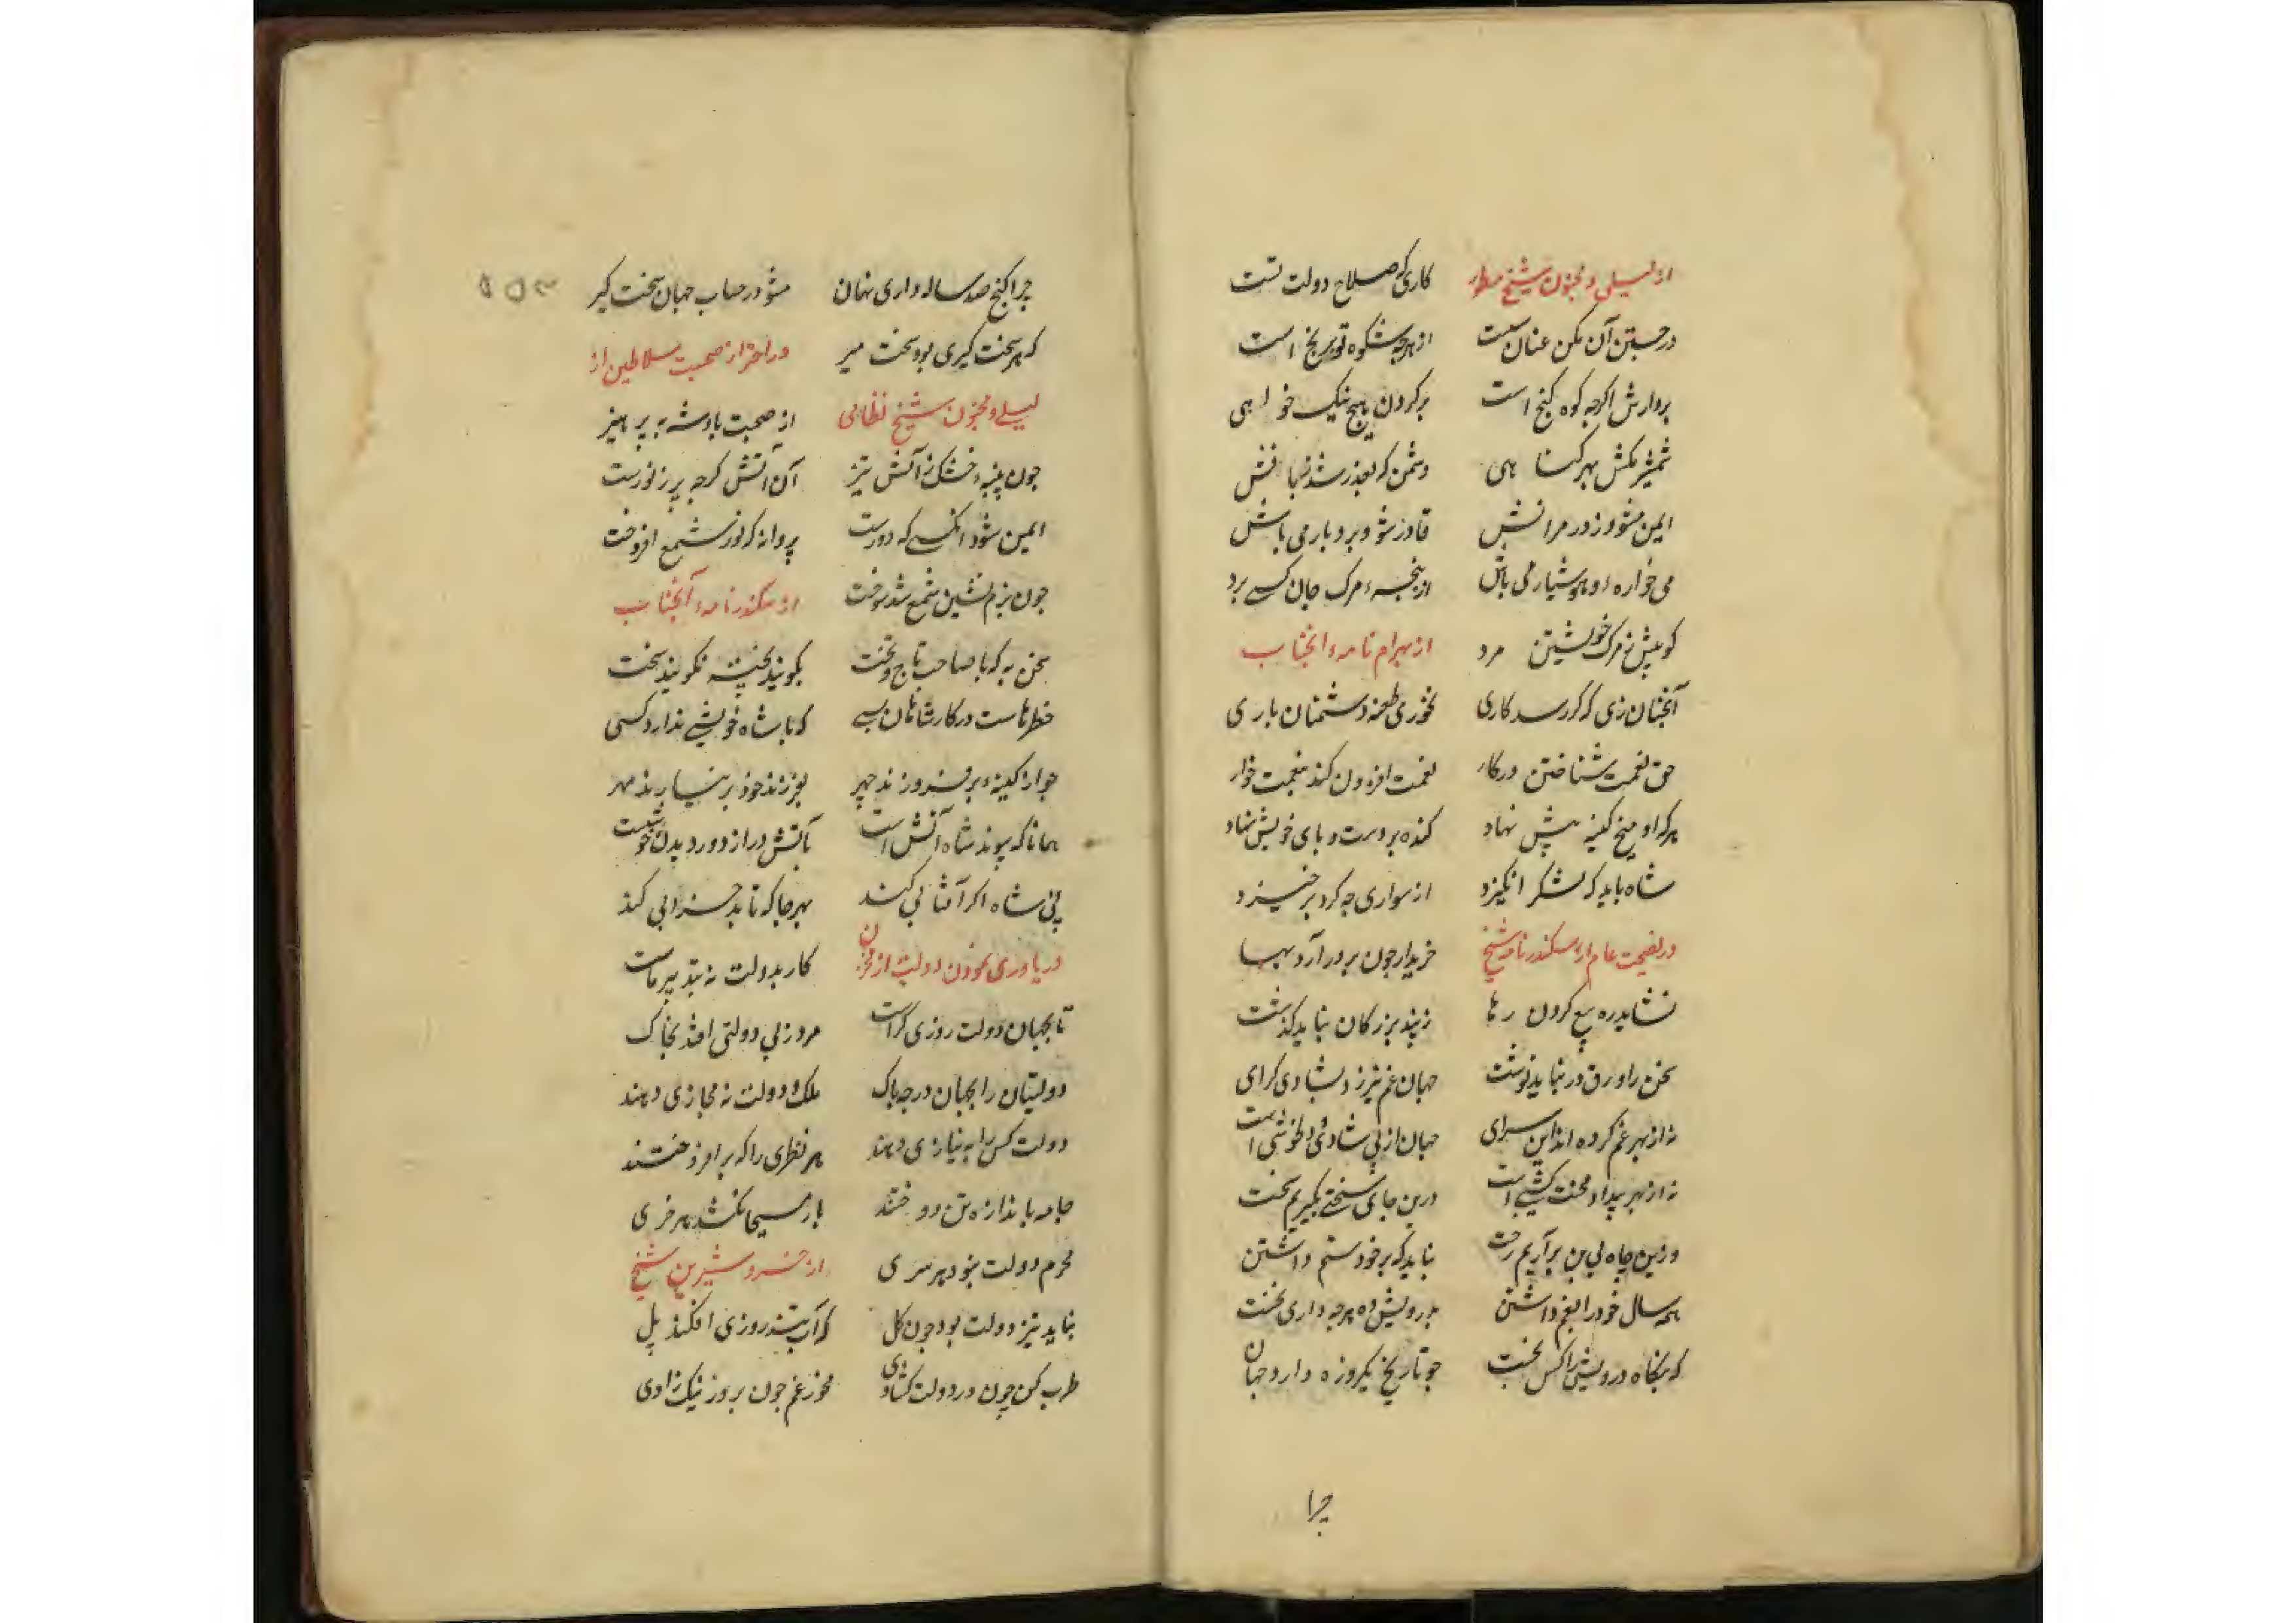 از لیلی و مجنون شیخ مطهر
کاری که صلاح دولت تست
در جستن آن مکن عنان سست
از هرچه شکوه تو برنج است
بردارش اکرچه کوه کنج است
بر کردن هیچ نیک خواهی
شمشیر مکش بهر کناهی
دشمن که بعذر شد زبانش
ایمن مشو و ز در مرانش
قادر شو و بردبار می باش
می خواره و هوشیار می باش
از پنجهٔ مرک جان کسے برد
کو پیش ز مرک خویشتن مرد
از بهرام نامهٔ انجناب
آنچنان زی که کر رسد کاری
نخوری طعنهٔ دشمنان باری
حق نعمت شناختن در کار
نعمت افزون کند بنعمت خوار
هرکه او میخ کینه پیش نهاد
کنده بر دست و پای خویش نهاد
شاه باید که لشکر انکیزد
از سواری چه کرد برخیزد
در نصیحت عام از سکندر نامهٔ شیخ
خریدار چون بر در آرد بها
نشاید ره بیع کردن رها
ز پند بزرکان نباید کذشت
سخن را ورق در نباید نوشت
جهان غم نیرزد بشادی کرای
نه از بهر غم کرده اند این سرای
جهان از پی شادی و دلخوشی است
نه از بهر بیداد و محنت کشی است
درین جای سختی نکیریم سخت
وزین چاه بی بن برآریم رخت
نباید که بر خود ستم داشتن
همه سال خود را بغم داشتن
بدرویش ده هرچه داری نخست
که بنکاه درویش را کس نجست
چو تاریخ یکروزه دارد جهان
چرا
چرا کنج صد ساله داری نهان
مشو در حساب جهان سخت کیر
که هر سخت کیری بود سخت میر
در احتراز صحبت سلاطین از
لیلے و مجنون شیخ نظامی
از صحبت پادشه بپرهیز
چون پنبهٔ خشک ز آتش تیز
آن آتش کرچه پر ز نورست
ایمن شود آنکسے که دورست
پروانه که نور شمع افروخت
چون بزم نشین شمع شد سوخت
از سکندر نامهٔ آنجناب
سخن به که با صاحب تاج و تخت
بکویند پخته نکویند سخت
خطرهاست در کار شاهان بسے
که با شاه خویشے ندارد کسی
چو از کینهٔ برفروزند چهر
بفرزند خود بر نیارند مهر
همانا که پیوند شاه آتش است
بآتش در از دور دیدن خوشست
پی شاه اکر آفتابی کند
بهر جا که تابد خرابی کند
در یاوری نمودن دولت از مخزن
کار بدولت نه بتدبیر ماست
تا بجهان دولت روزی کراست
مرد ز بی دولتی افتد بخاک
دولتیان را بجهان در چه باک
ملک و دولت نه مجازی دهند
دولت کس را به نیازی دهند
هر نظری را که برافروختند
جامه باندازهٔ تن دوختند
بار مسیحا نکشد هر خری
محرم دولت نبود هر سری
از خسرو شیرین شیخ
نباید تیز دولت بود چون کل
که آب تیز روزی افکند پل
طرب کن چون در دولت کشادی
مخور غم چون بروز نیک زادی